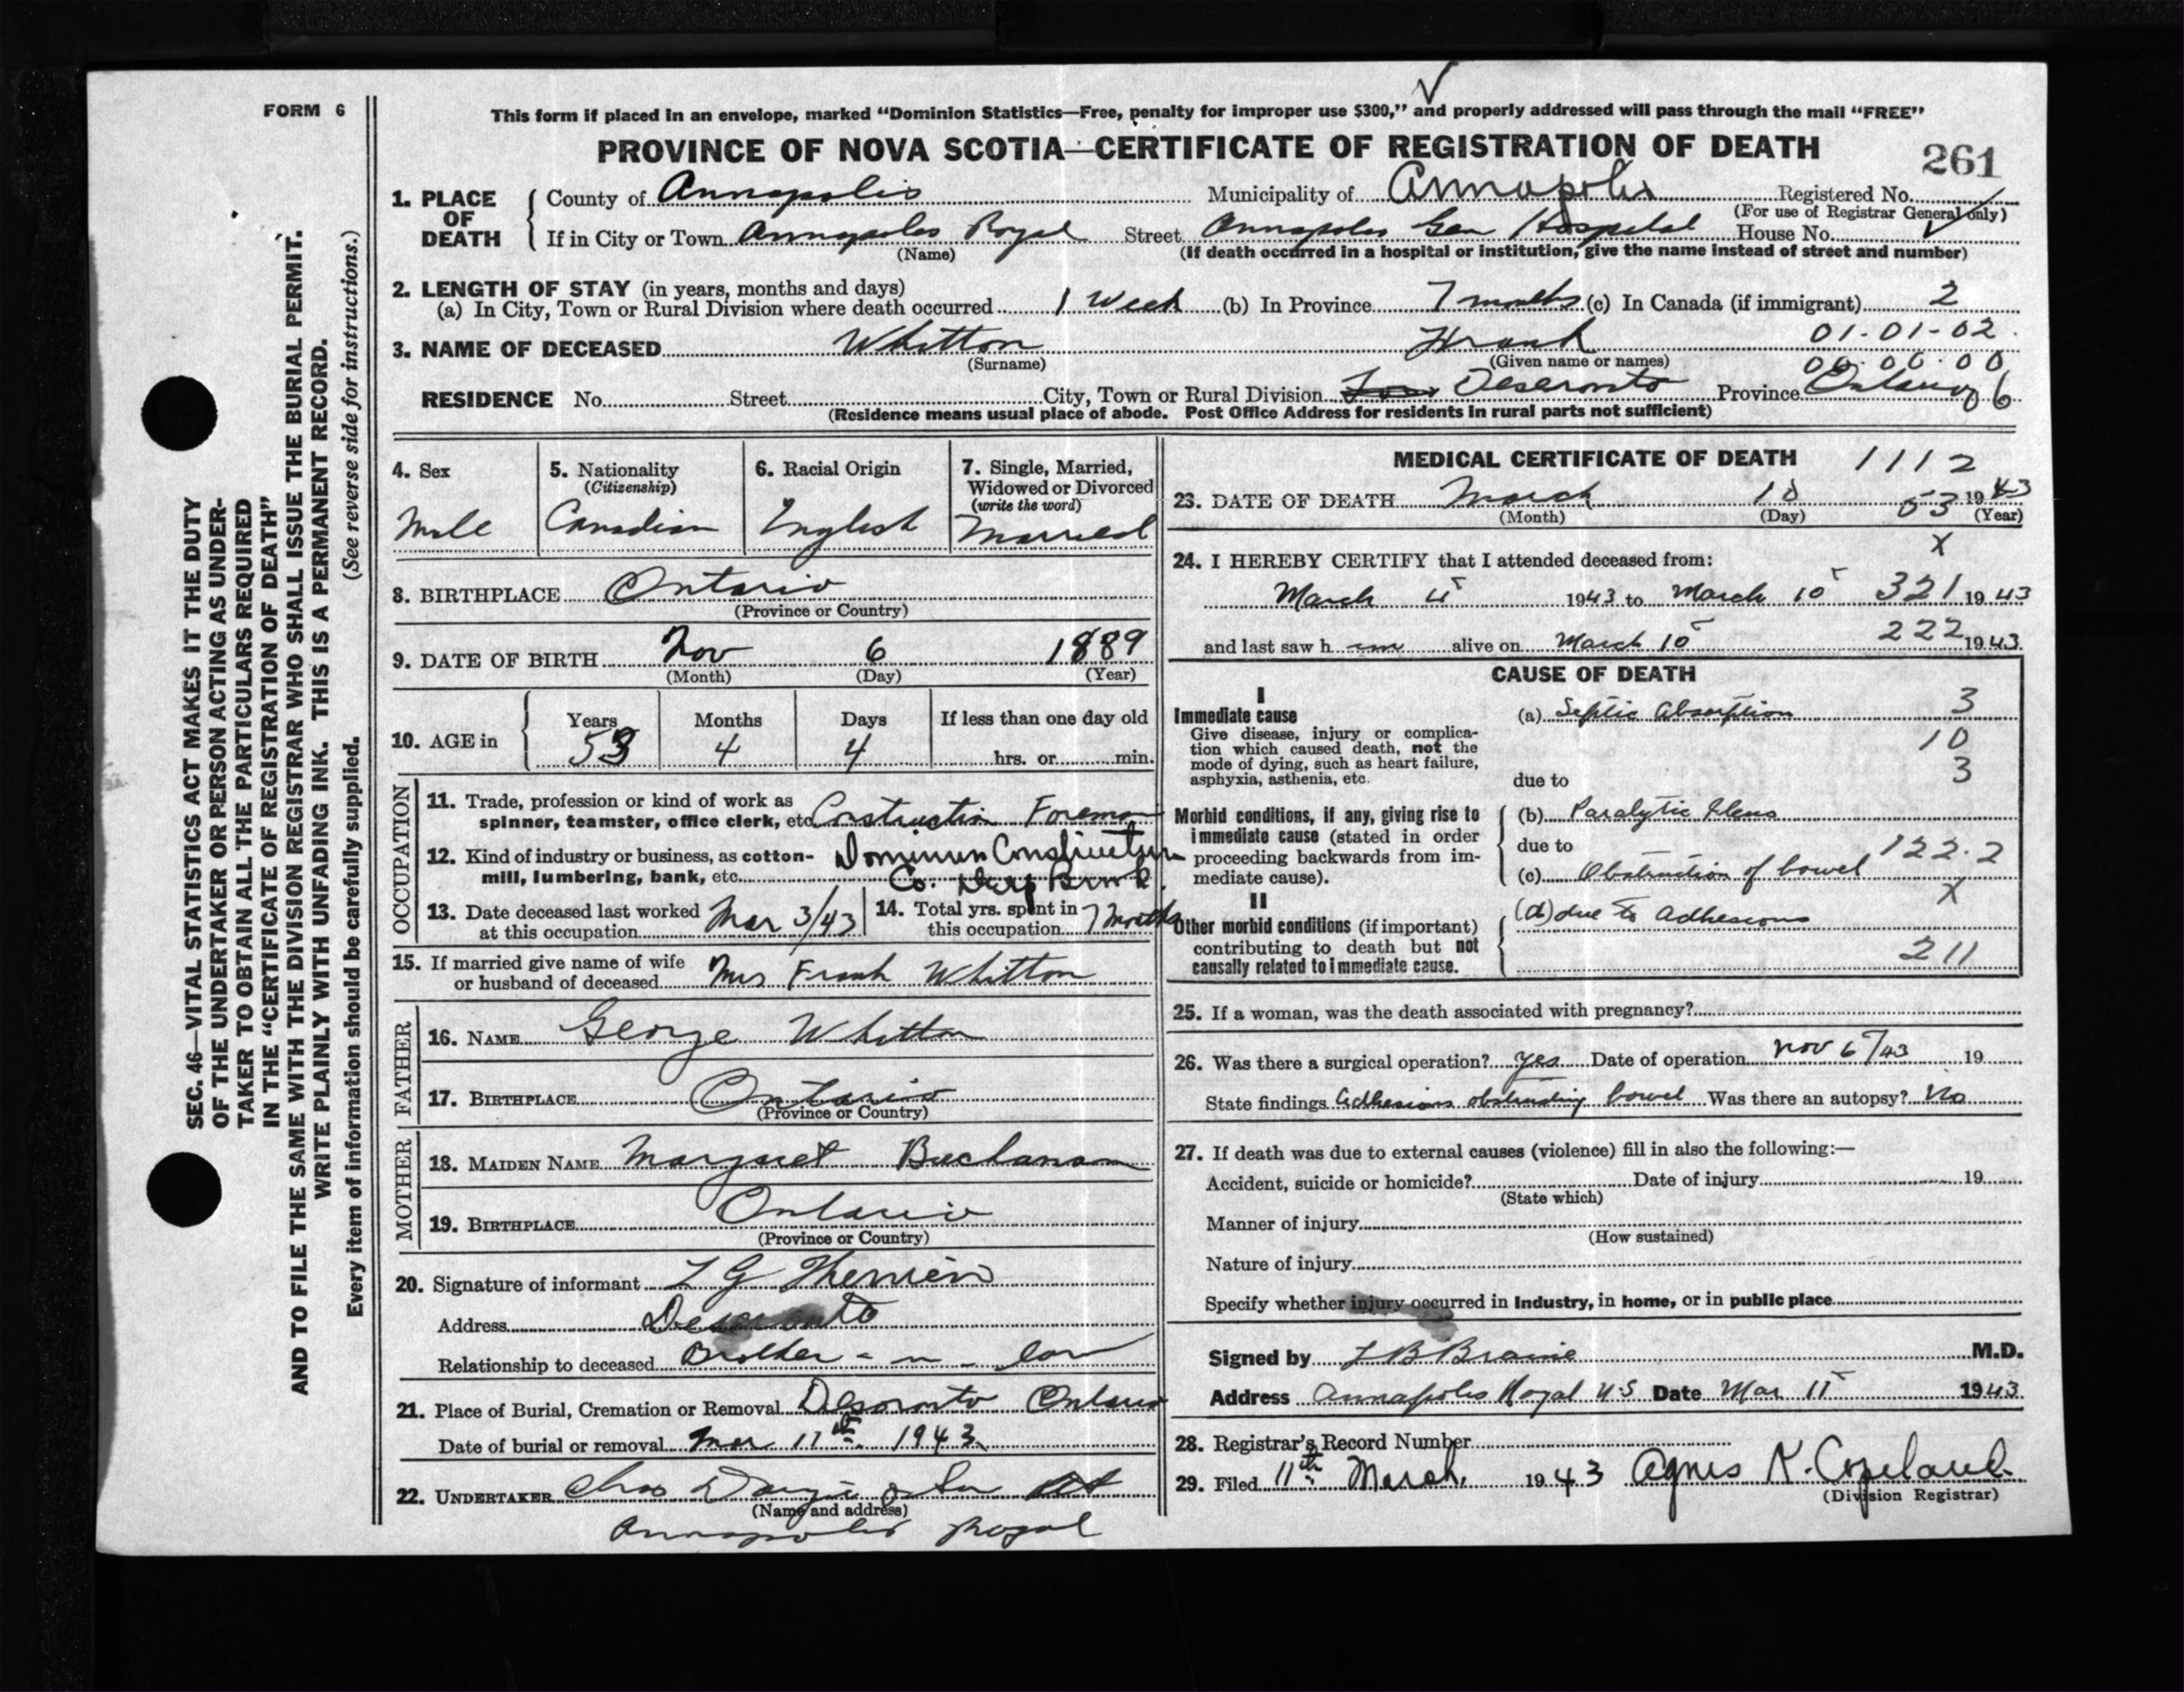 FORM 6
This form if placed in an envelope, marked “Dominion Statistics—Free, penalty for improper use $300,” and properly addressed will pass through the mail “FREE”
PROVINCE OF NOVA SCOTIA—CERTIFICATE OF REGISTRATION OF DEATH
261
1. PLACE OF DEATH County of Annapolis Municipality of Annapolis Registered No.
(For use of Registrar General only)
If in City or Town Annapolis Royal Street Annapolis Gen Hospital House No.
(Name) (If death occurred in a hospital or institution, give the name instead of street and number)
2. LENGTH OF STAY (in years, months and days)
(a) In City, Town or Rural Division where death occurred 1 Week (b) In Province 7 months (c) In Canada (if immigrant) 2
01-01-02
3. NAME OF DECEASED Whitton Frank
(Surname) (Given name or names) 00.00.00
RESIDENCE No. Street City, Town or Rural Division Deseronto Province Ontario 6
(Residence means usual place of abode. Post Office Address for residents in rural parts not sufficient)
4. Sex Male
5. Nationality (Citizenship) Canadian
6. Racial Origin English
7. Single, Married, Widowed or Divorced (write the word) Married
8. BIRTHPLACE Ontario
(Province or Country)
9. DATE OF BIRTH Nov 6 1889
(Month) (Day) (Year)
10. AGE in Years 53 Months 4 Days 4 If less than one day old hrs. or min.
OCCUPATION
11. Trade, profession or kind of work as spinner, teamster, office clerk, etc. Construction Foreman
12. Kind of industry or business, as cotton-mill, lumbering, bank, etc. Dominion Construction Co. Deep Brook
13. Date deceased last worked at this occupation Mar 3/43
14. Total yrs. spent in this occupation 7 months
15. If married give name of wife or husband of deceased Mrs Frank Whitton
FATHER
16. NAME George Whitton
17. BIRTHPLACE Ontario
(Province or Country)
MOTHER
18. MAIDEN NAME Margaret Buchanan
19. BIRTHPLACE Ontario
(Province or Country)
20. Signature of informant L G Therrien
Address Deseronto
Relationship to deceased Brother-in-law
21. Place of Burial, Cremation or Removal Desoronto Ontario
Date of burial or removal Mar 11th 1943
22. UNDERTAKER Chas & Son
(Name and address)
Annapolis Royal
MEDICAL CERTIFICATE OF DEATH 1112
23. DATE OF DEATH March 10 53 1943
(Month) (Day) (Year)
X
24. I HEREBY CERTIFY that I attended deceased from:
March 4 1943 to March 10 321 1943
and last saw h im alive on March 10 222 1943
CAUSE OF DEATH
I
Immediate cause
Give disease, injury or complication which caused death, not the mode of dying, such as heart failure, asphyxia, asthenia, etc.
(a) Septic Absorption 3
10
due to 3
Morbid conditions, if any, giving rise to immediate cause (stated in order proceeding backwards from immediate cause).
(b) Paralytic Ileus
due to 122.2
(c) Obstruction of bowel
X
II
Other morbid conditions (if important) contributing to death but not causally related to immediate cause.
(d) due to Adhesions
211
25. If a woman, was the death associated with pregnancy?
26. Was there a surgical operation? Yes Date of operation Nov 6/43 19
State findings Adhesions obstructing bowel Was there an autopsy? No
27. If death was due to external causes (violence) fill in also the following:—
Accident, suicide or homicide? Date of injury 19
(State which)
Manner of injury
(How sustained)
Nature of injury
Specify whether injury occurred in Industry, in home, or in public place
Signed by L B Braine M.D.
Address Annapolis Royal N.S Date Mar 11 1943
28. Registrar's Record Number
29. Filed 11th March, 1943 Agnes K. Copeland
(Division Registrar)
SEC. 46—VITAL STATISTICS ACT MAKES IT THE DUTY
OF THE UNDERTAKER OR PERSON ACTING AS UNDER-
TAKER TO OBTAIN ALL THE PARTICULARS REQUIRED
IN THE “CERTIFICATE OF REGISTRATION OF DEATH”
AND TO FILE THE SAME WITH THE DIVISION REGISTRAR WHO SHALL ISSUE THE BURIAL PERMIT.
WRITE PLAINLY WITH UNFADING INK. THIS IS A PERMANENT RECORD.
Every item of information should be carefully supplied. (See reverse side for instructions.)